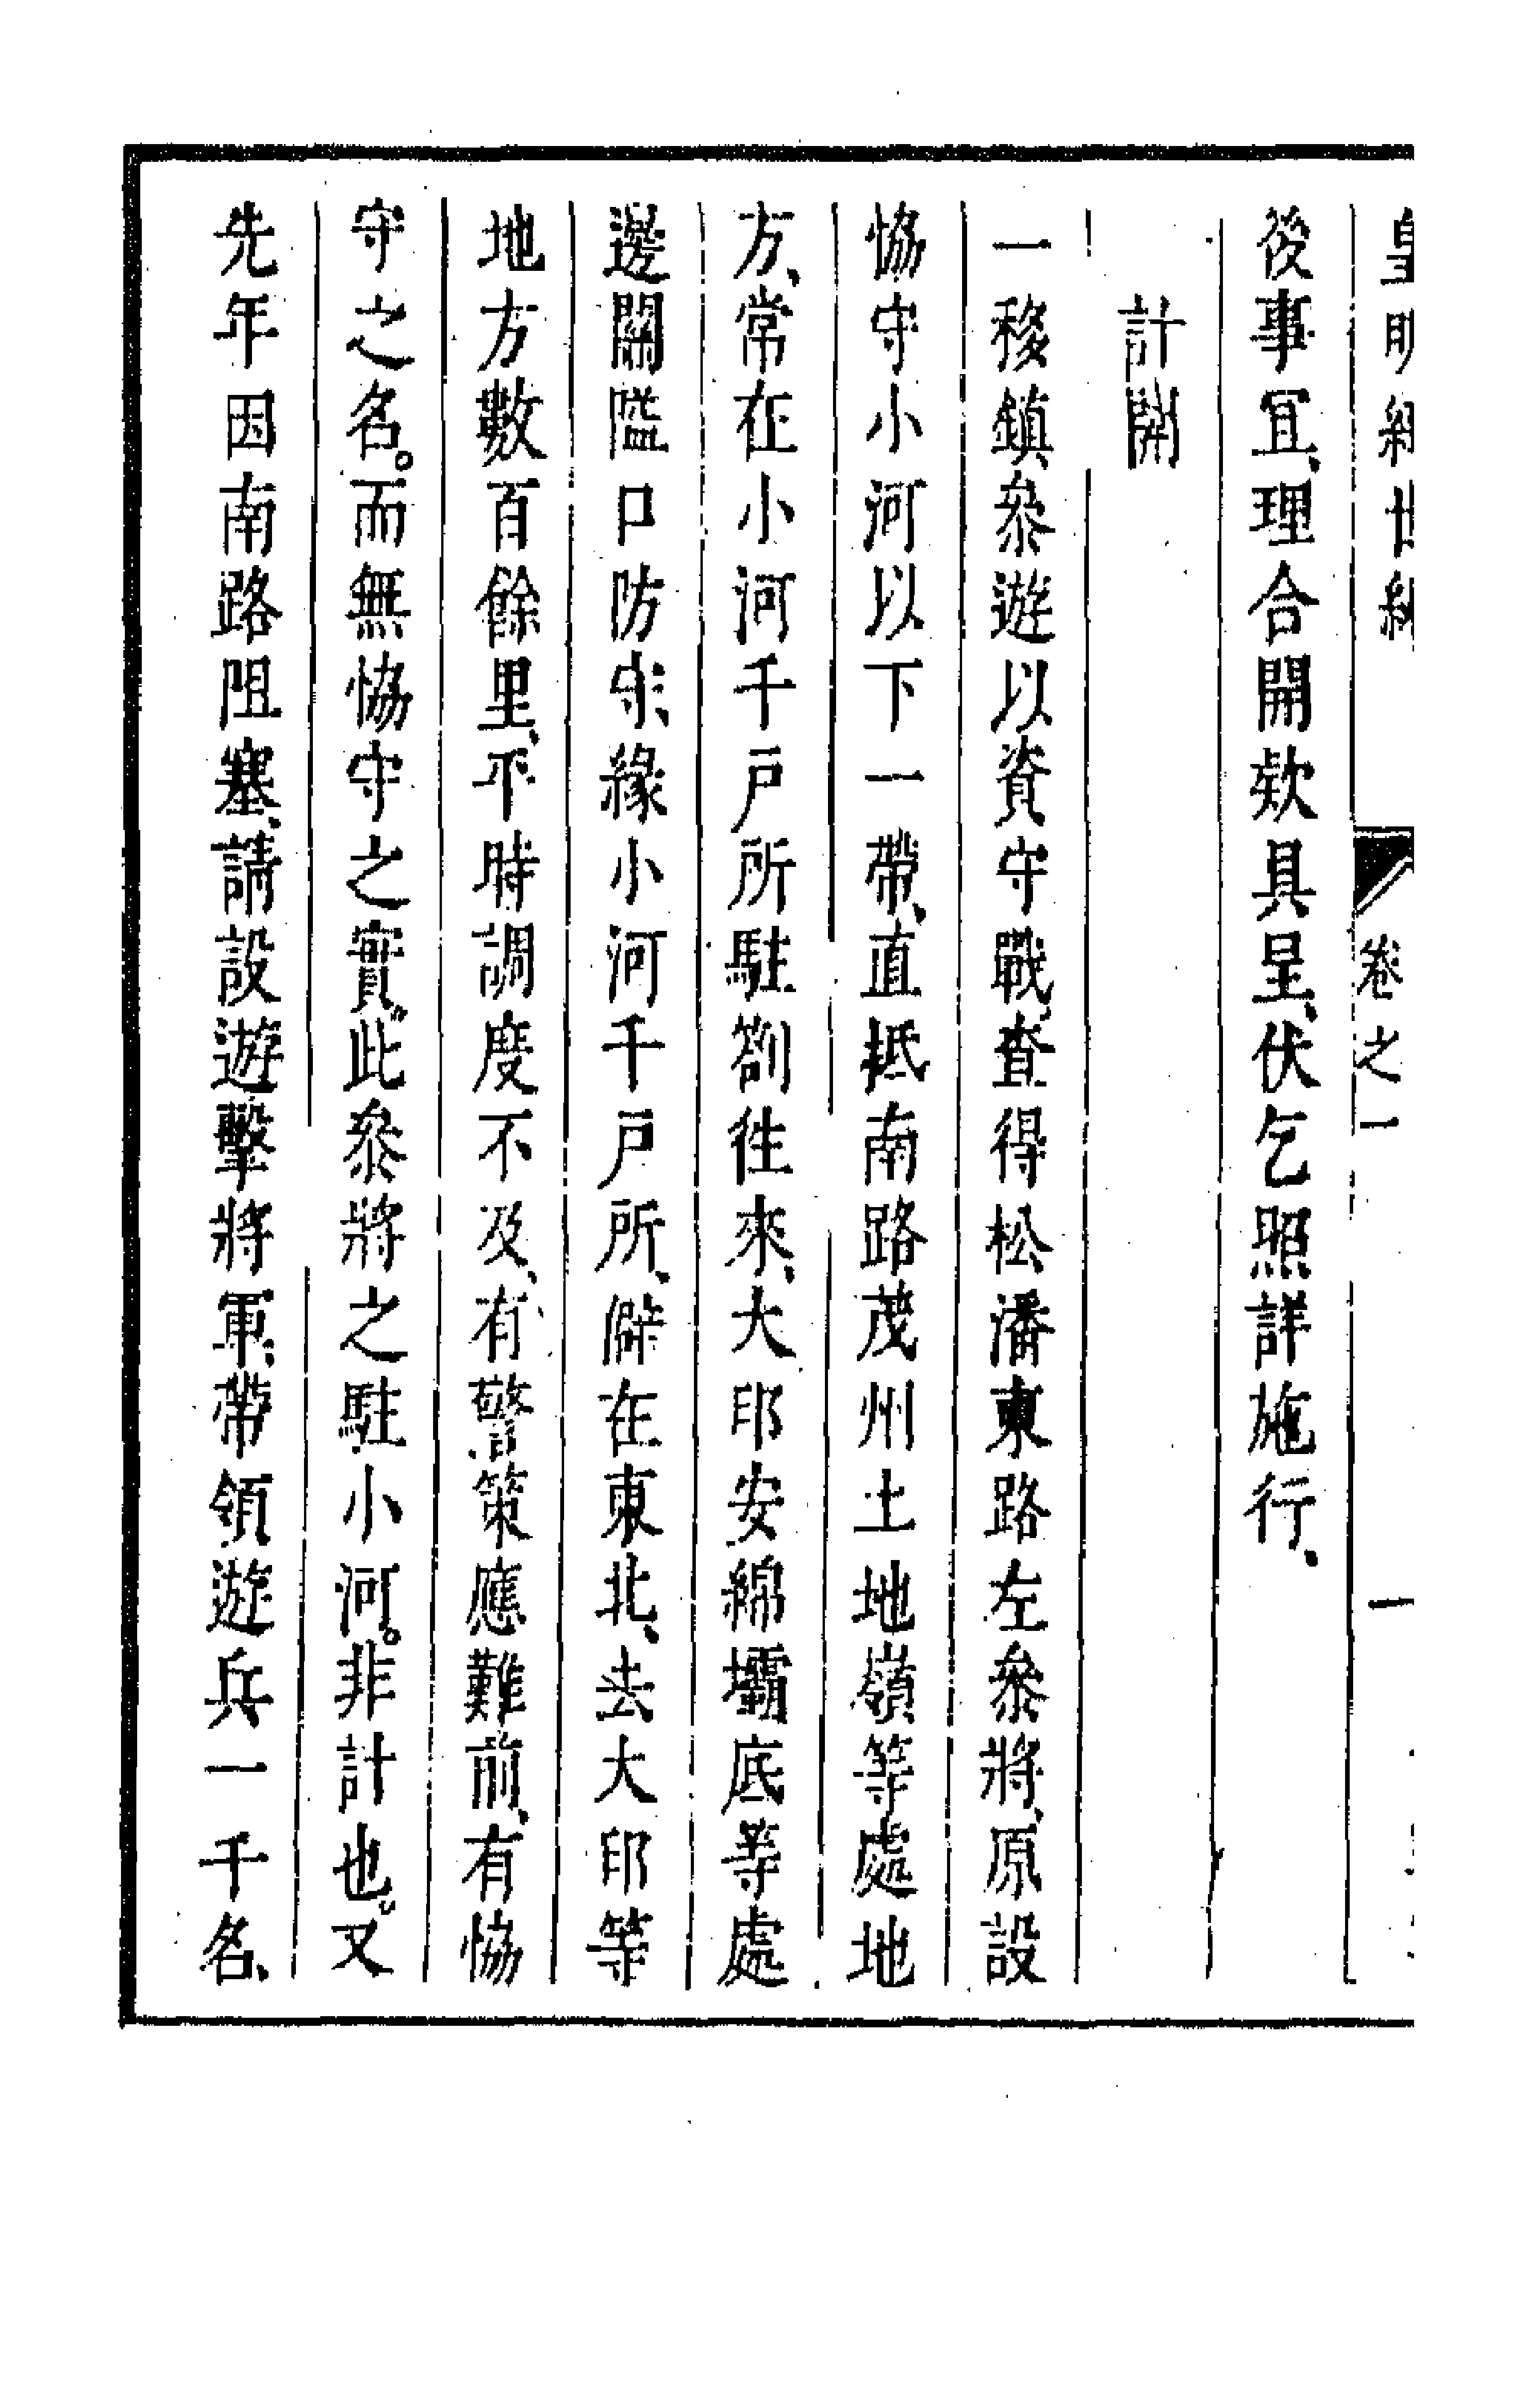 皇明經世編　卷之一　一
後事宜、理合開欵具呈、伏乞照詳施行、
計開
一移鎮叅遊以資守戰、查得松潘東路左叅將、原設
恊守小河以下一帶、直抵南路茂州土地嶺等處地
方、常在小河千戶所駐劄徃來、大印安綿壩底等處
邊關隘口防守、緣小河千戶所、僻在東北、去大印等
地方數百餘里、平時調度不及、有警策應難前、有恊
守之名。而無恊守之實。此叅將之駐小河。非計也。又
先年因南路阻塞、請設遊擊將軍、帶領遊兵一千名、